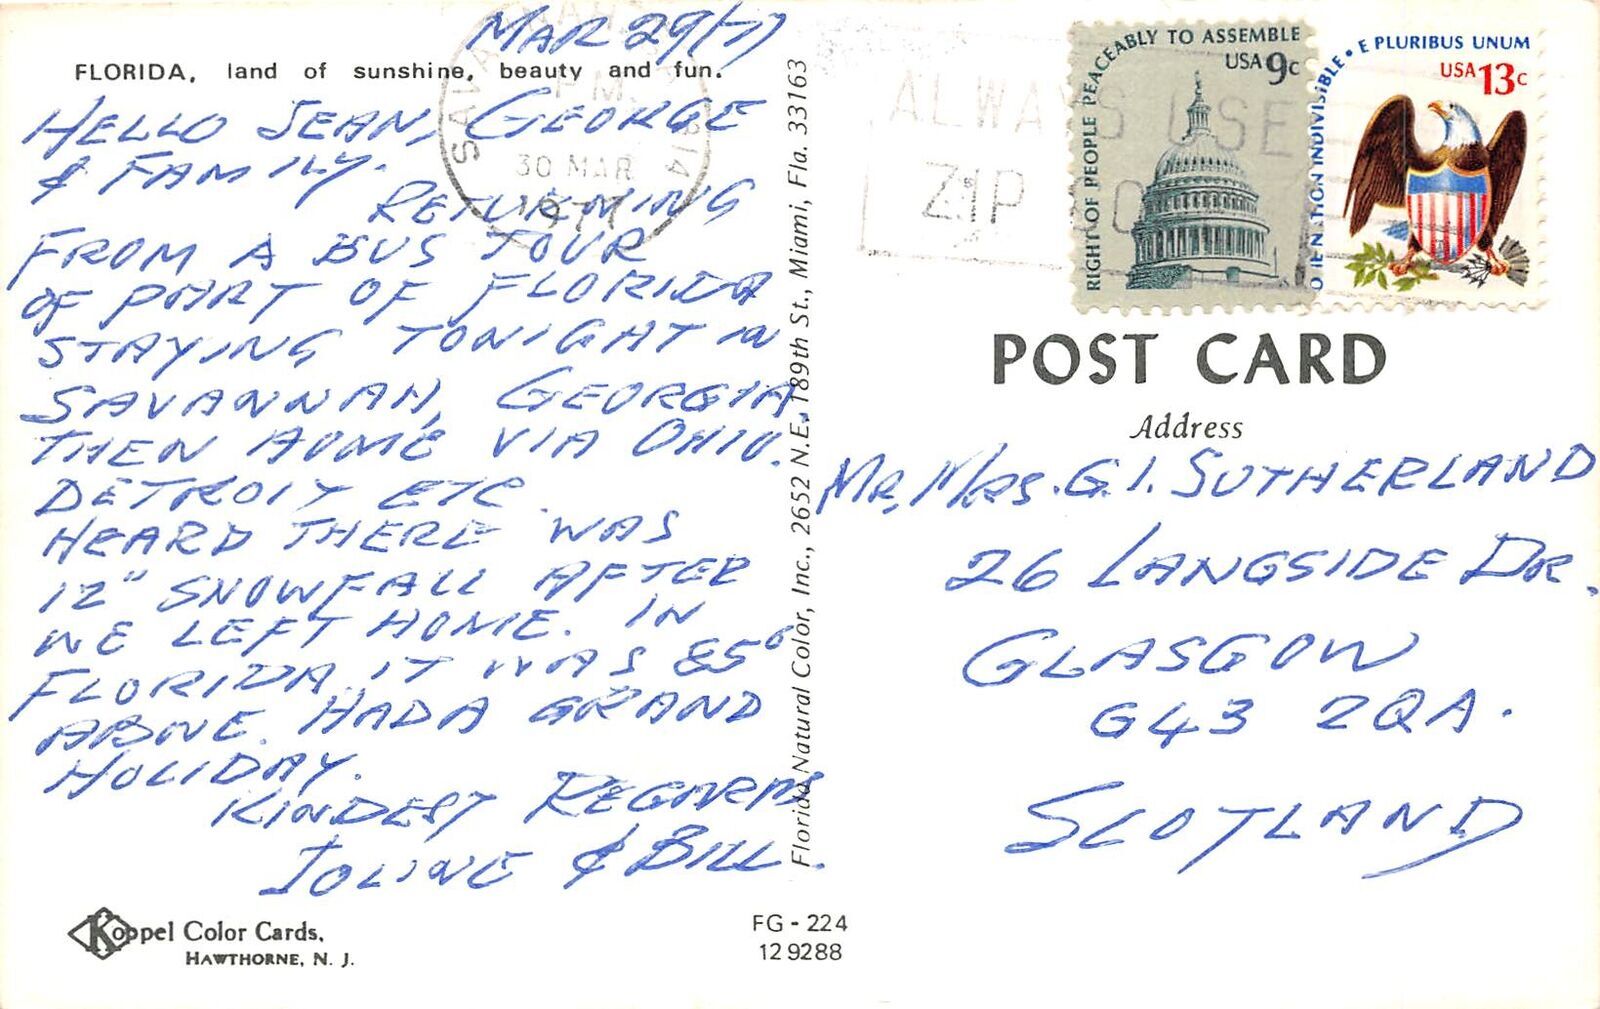 MAR 29/77
FLORIDA, land of sunshine, beauty and fun.
HELLO JEAN, GEORGE
& FAMILY.
RETURNING
FROM A BUS TOUR
OF PART OF FLORIDA
STAYING TONIGHT IN
SAVANNAH, GEORGIA
THEN HOME VIA OHIO.
DETROIT ETC.
HEARD THERE WAS
12" SNOWFALL AFTER
WE LEFT HOME. IN
FLORIDA IT WAS 85°
ABOVE. HAD A GRAND
HOLIDAY.
KINDEST REGARDS
& BILL.
Koppel Color Cards,
HAWTHORNE, N. J.
P.M.
30 MAR
1977
Florida Natural Color, Inc., 2652 N.E. 189th St., Miami, Fla. 33163
FG - 224
129288
ALWAYS USE
ZIP CO
RIGHT OF PEOPLE PEACEABLY TO ASSEMBLE
USA 9c
ONE NATION INDIVISIBLE • E PLURIBUS UNUM
USA 13c
POST CARD
Address
MR, MRS. G. I. SUTHERLAND
26 LANGSIDE DR.
GLASGOW
G43 2QA.
SCOTLAND